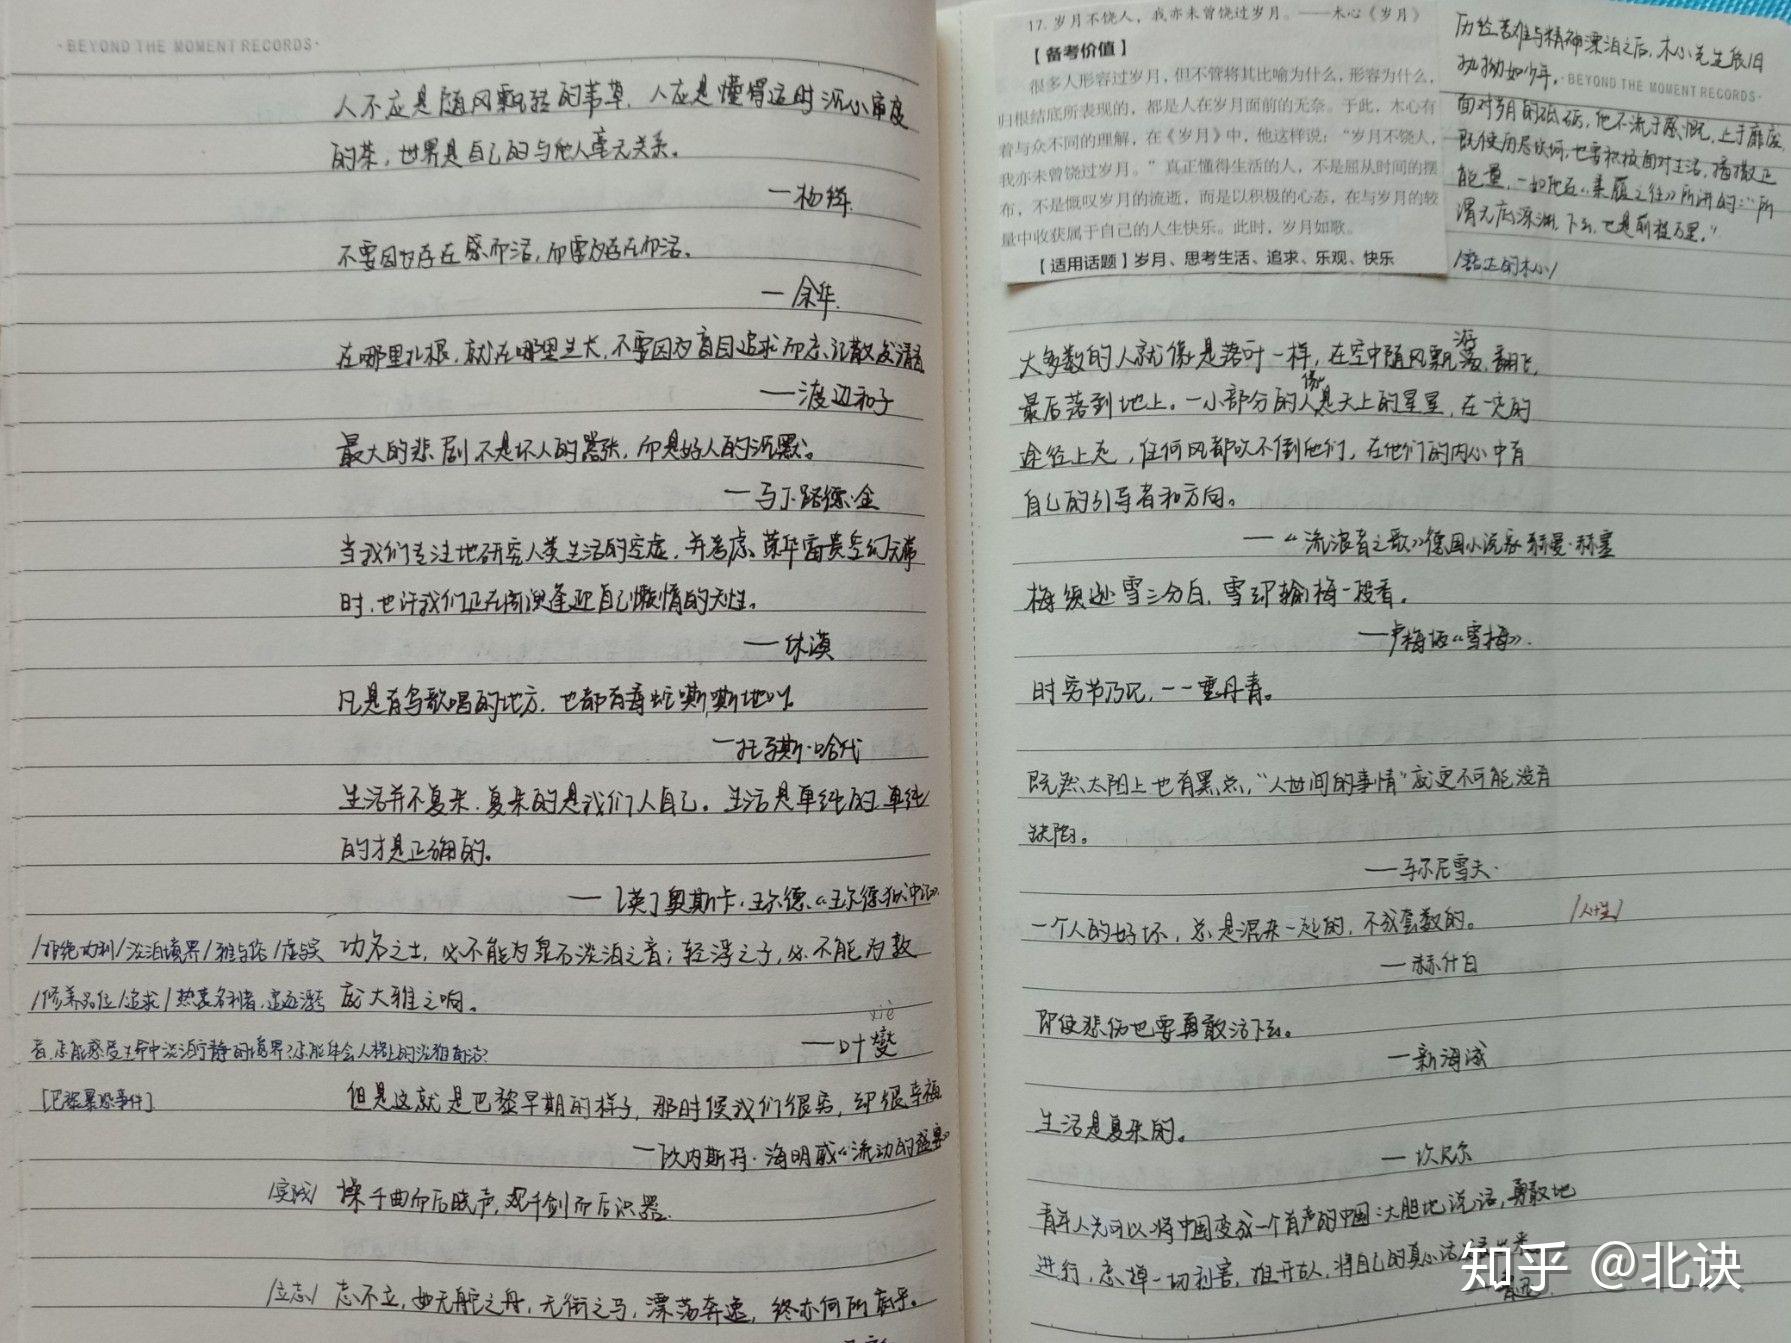 ·BEYOND THE MOMENT RECORDS·
人不应是随风飘转的苇草，人应是懂得适时沉心审度
的茶，世界是自己的与他人毫无关系。
—杨绛
不要因为存在感而活，而要为存在而活。
—余华.
在哪里扎根，就在哪里生长，不要因为盲目追求而忘记散发清香
——渡边和子
最大的悲剧不是坏人的嚣张，而是好人的沉默。
—马丁·路德·金
当我们专注地研究人类生活的空虚，并考虑荣华富贵空幻无常
时，也许我们正在阿谀逢迎自己懒惰的天性。
——休漠
凡是有鸟歌唱的地方，也都有毒蛇嘶嘶地叫。
—托马斯·哈代
生活并不复杂，复杂的是我们人自己。生活是单纯的，单纯
的才是正确的。
——［英］奥斯卡·王尔德《王尔德狱中记》
/拒绝功利/淡泊境界/雅与俗/虚与实
功名之士，必不能为泉石淡泊之音；轻浮之子，必不能为敦
/修养品位/追求/热衷名利者，追逐浮
庞大雅之响。
者，怎能感受生命中淡泊宁静的境界？怎能体会人格上的
xiè
——叶燮
[巴黎暴恐事件]
但是这就是巴黎早期的样子，那时侯我们很穷，却很幸福
—欧内斯特·海明威《流动的盛宴》
/实践/ 操千曲而后晓声，观千剑而后识器.
/立志/ 志不立，如无舵之舟，无衔之马，漂荡奔逸，终亦何所底乎。
17. 岁月不饶人，我亦未曾饶过岁月。——木心《岁月》
【备考价值】
很多人形容过岁月，但不管将其比喻为什么，形容为什么，
归根结底所表现的，都是人在岁月面前的无奈。于此，木心有
着与众不同的理解，在《岁月》中，他这样说：“岁月不饶人，
我亦未曾饶过岁月。”真正懂得生活的人，不是屈从时间的摆
布，不是慨叹岁月的流逝，而是以积极的心态，在与岁月的较
量中收获属于自己的人生快乐。此时，岁月如歌。
【适用话题】岁月、思考生活、追求、乐观、快乐
历经苦难与精神漂泊之后，木心先生依旧
如少年.
·BEYOND THE MOMENT RECORDS·
面对岁月的砥砺，他不流于感慨，止于靡废
既使困厄坎坷，也要积极面对生活，播撒正
能量，一如他在《素履之往》所讲的：“所
谓无底深渊，下去，也是前程万里。”
的木心/
大多数的人就像是落叶一样，在空中随风飘游、翻飞、
最后落到地上。一小部分的人像是天上的星星，在一定的
途径上走，任何风都吹不倒他们，在他们的内心中有
自己的引导者和方向。
—《流浪者之歌》德国小说家赫曼·赫塞
梅须逊雪三分白，雪却输梅一段香。
—卢梅坡《雪梅》.
时穷节乃见，一一垂丹青。
既然太阳上也有黑点，“人世间的事情”就更不可能没有
缺陷。
——车尔尼雪夫·
一个人的好坏，总是混杂一起的，不成套数的。
/人性/
—赫什白
即使悲伤也要勇敢活下去。
—新海诚
生活是复杂的。
— 坎贝尔
青年人先可以将中国变成一个有声的中国：大胆地说话，勇敢地
进行，忘掉一切利害，推开古人，将自己的真心话
知乎 @北诀